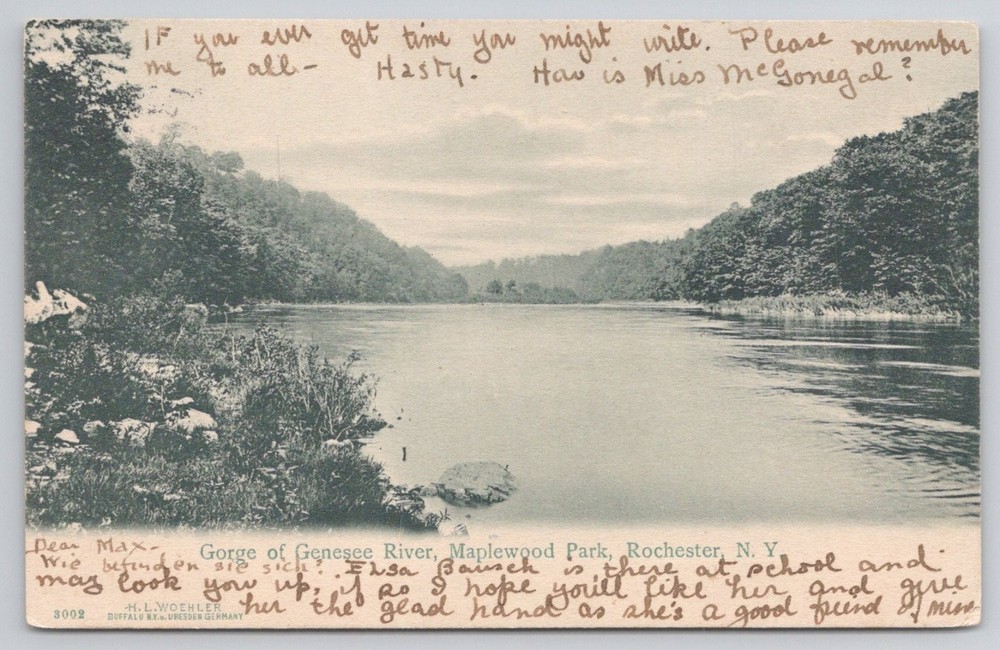 IF you ever get time you might write. Please remember
me to all – Hasty. How is Miss McGonegal?
Gorge of Genesee River, Maplewood Park, Rochester, N. Y
Dear Max –
Wie befinden sie sich? Elsa Bausch is there at school and
may look you up, if so I hope you'll like her and give
her the glad hand as she's a good friend of mine –
3002
H. L. WOEHLER
BUFFALO N.Y. & DRESDEN GERMANY